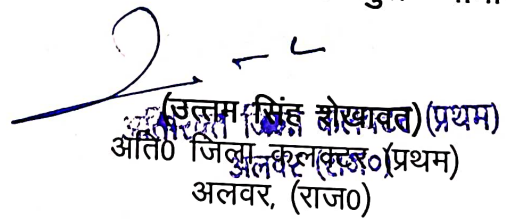 (उत्तम सिंह शेखावत) (प्रथम)
अति0 जिला कलक्टर (प्रथम)
अलवर, (राज0)